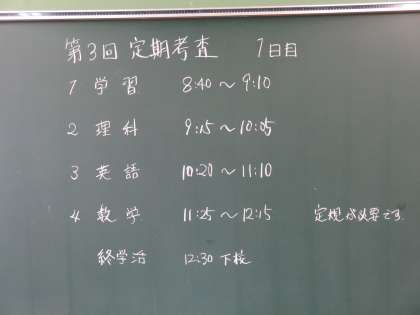 第3回 定期考査 1日目
1 学習 8:40～9:10
2 理科 9:15～10:05
3 英語 10:20～11:10
4 数学 11:25～12:15 定規が必要です.
終学活 12:30 下校